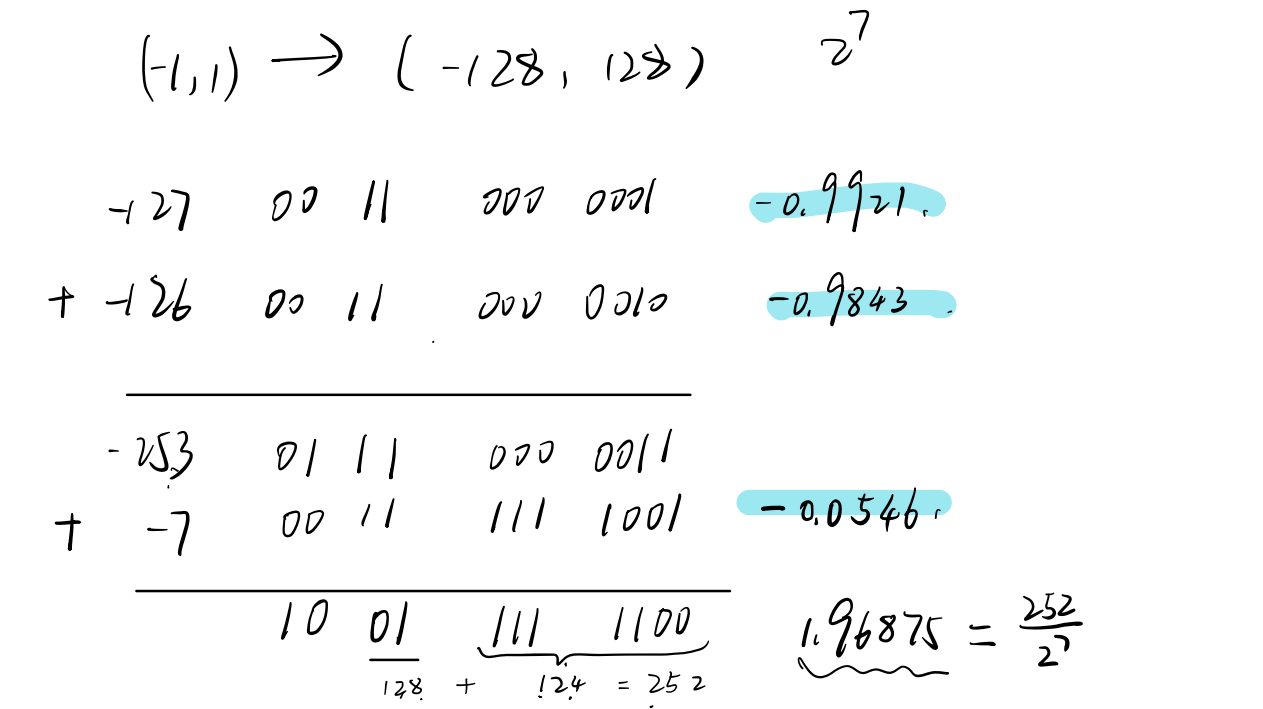 (-1, 1) → (-128, 128) 2^7
-127 00 11 000 0001 -0.9921.
+ -126 00 11 000 0010 -0.9843.
-253 01 11 000 0011
+ -7 00 11 111 1001 -0.0546.
10 01 111 1100 1.96875 = 252/2^7
128 + 124 = 252